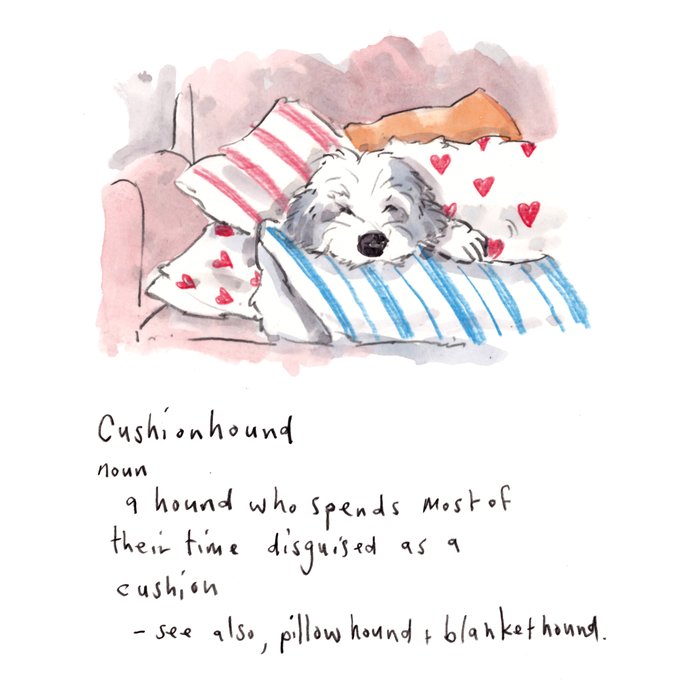 Cushionhound
noun
a hound who spends most of
their time disguised as a
cushion
- see also, pillowhound + blankethound.